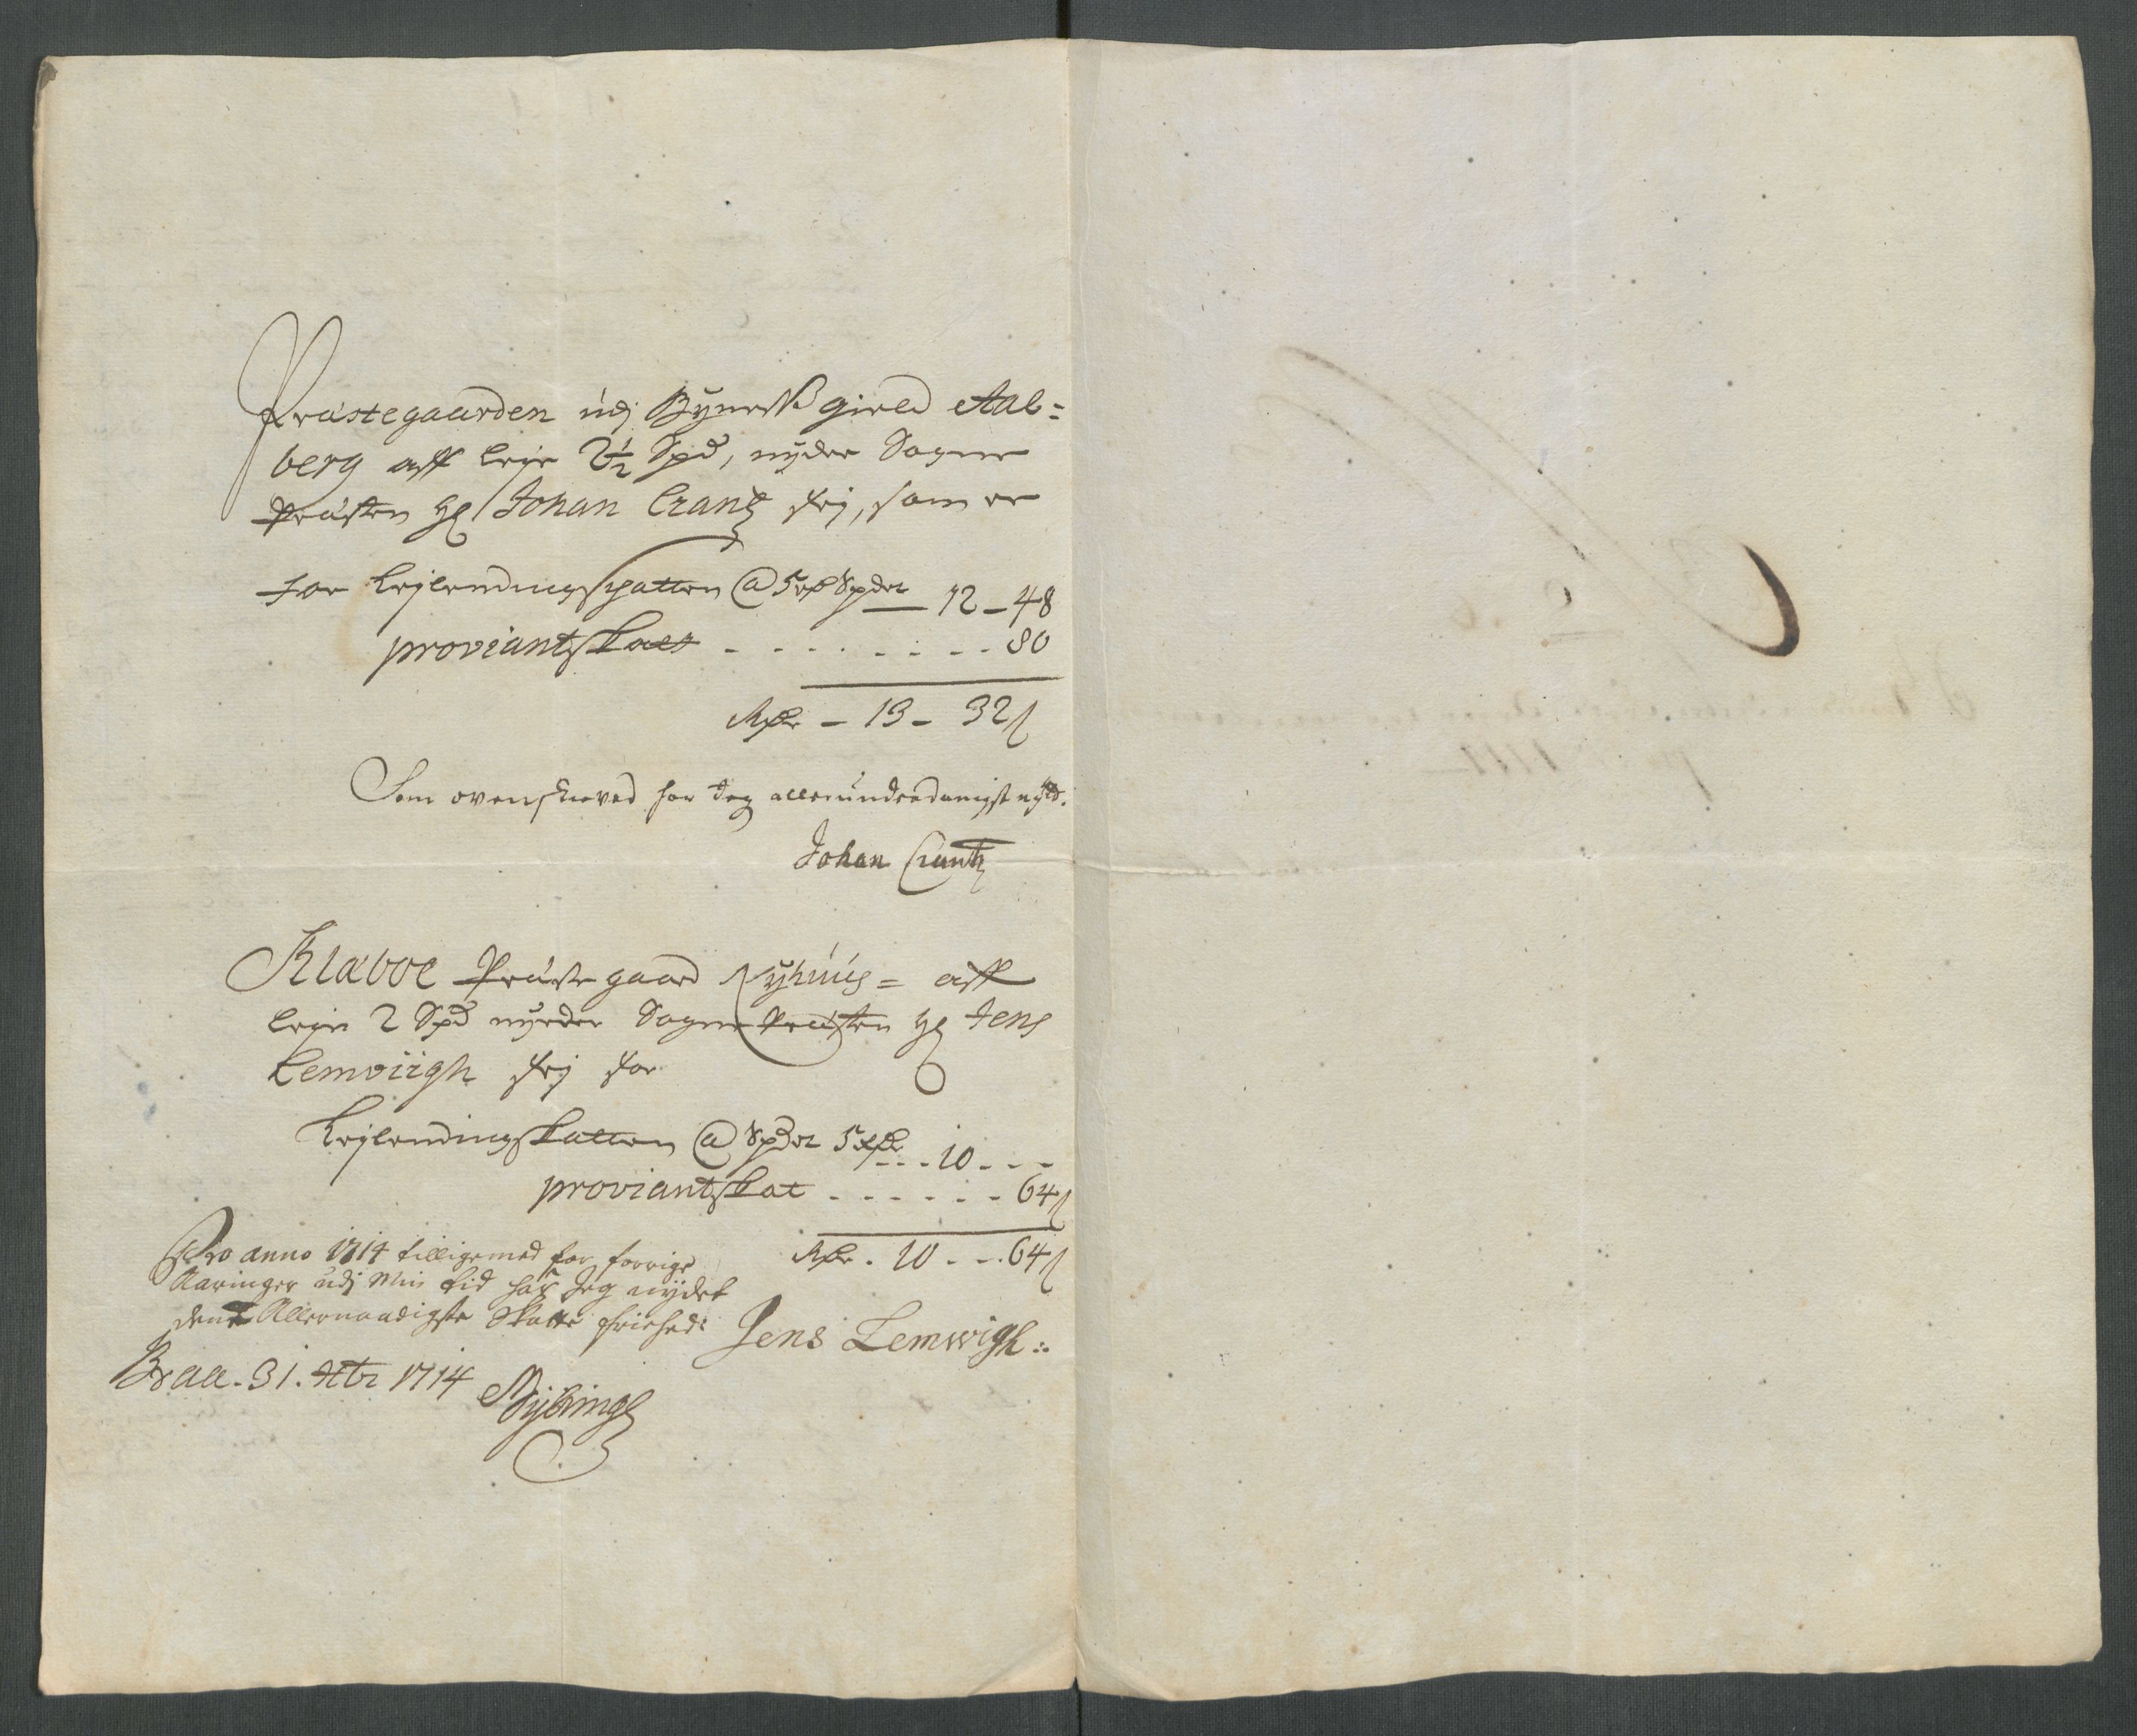 Præstegaarden udj Byness gield Aal=
berg aff leje 2½ Spd, nyder Sogne
Præsten Hr Johan Crantz frj, som er
for Lejlendingschatten @ 5 rdr Spdet — 12 – 48
proviantskatt - - - - - - - - 80
Rdr – 13 – 32 s
Som ovenskreved har Jeg allerunderdanigst nydt.
Johan Crantz
Klæboe Præste gaard Nyhuus = aff
leje 2 Spd nyeder Sogne Præsten Hr Jens
Lemviigh frj for
Lejlendingskatten @ Spdet 5 rdr - - - 10 - - -
proviantskat - - - - - - 64 s
Rdr . 10 - - . 64 s
Pro anno 1714 tilligemed for forrige
Aaringer udj Min tid har Jeg nydet
denne Allernaadigste Skatte friehed:
Jens Lemwigh :.
31. 1714